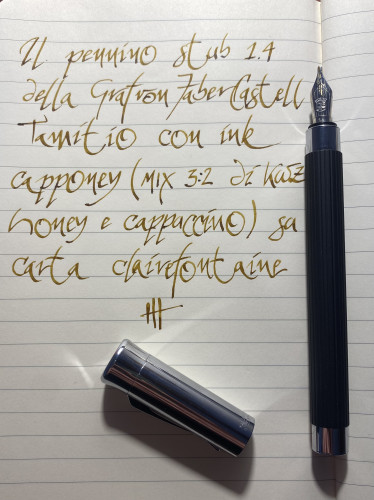 Il pennino stub 1.4
della Grafvon FaberCastell
Tamitio con ink
capponey (MIX 3:2 di Kaƶ
honey e cappuccino) su
carta clairefontaine